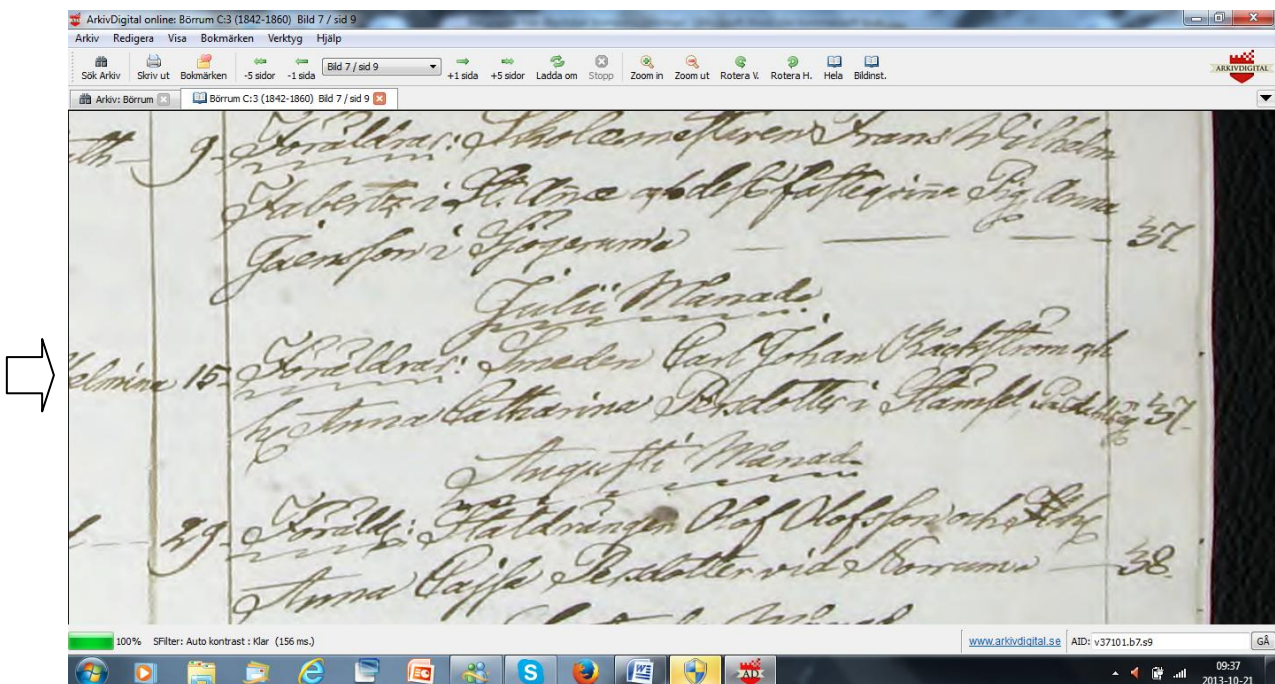 ArkivDigital online: Börrum C:3 (1842-1860) Bild 7 / sid 9
Arkiv Redigera Visa Bokmärken Verktyg Hjälp
Sök Arkiv Skriv ut Bokmärken -5 sidor -1 sida Bild 7 / sid 9 +1 sida +5 sidor Ladda om Stopp Zoom in Zoom ut Rotera V. Rotera H. Hela Bildinst.
ARKIVDIGITAL
Arkiv: Börrum Börrum C:3 (1842-1860) Bild 7 / sid 9
9. Föräldrar: Skolæmesteren Frans Wilhelm
i St. Anæ och dess fästeqvinna Pig. Anna
i 37.
Julii Månad.
15. Föräldrar: Smeden Carl Johan Bäckström och
h. Anna Catharina Persdotter i 37.
Augusti Månad.
29. Föräldr: Statdrängen Olof Olofsson och
Anna Cajsa Persdotter vid Norrum 38.
100% SFilter: Auto kontrast : Klar (156 ms.) www.arkivdigital.se AID: v37101.b7.s9 GÅ
09:37
2013-10-21